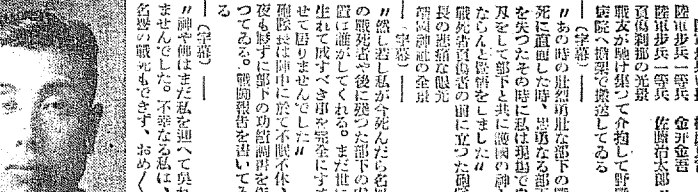 陸軍歩兵一等兵　金井金吾
陸軍歩兵一等兵　佐藤治太郎
貴傷刹那の光景
戦友が馳け集つて介抱して野戦
病院へ擔架で搬送してゐる
―（字幕）―
〃あの時の壯烈勇壯な部下の戰
死に直面した時、忠勇なる部下
を失つたその時に私は現場で自
刃をして部下と共に護國の神と
ならんと覺悟をしました〃
戰死者負傷者の前に立つた砲隊
長の悲痛な眼光
―（字幕）―
靖國神社の全景
〃然し若し私が今死んだら名譽
の戰死者や後に殘つた部下の功
績は誰がしてくれる。まだ世に
生れて成すべき事を完全にすま
せて居りませんでした〃
砲隊長は陣中に於て不眠不休、
夜も寢ずに部下の功績調査をや
つてゐる。戰鬪報告を書いてゐ
る
―（字幕）―
〃神や佛はまだ私を迎へて呉れ
ませんでした。不幸なる私は、
名譽の戰死もできず、おめ〱